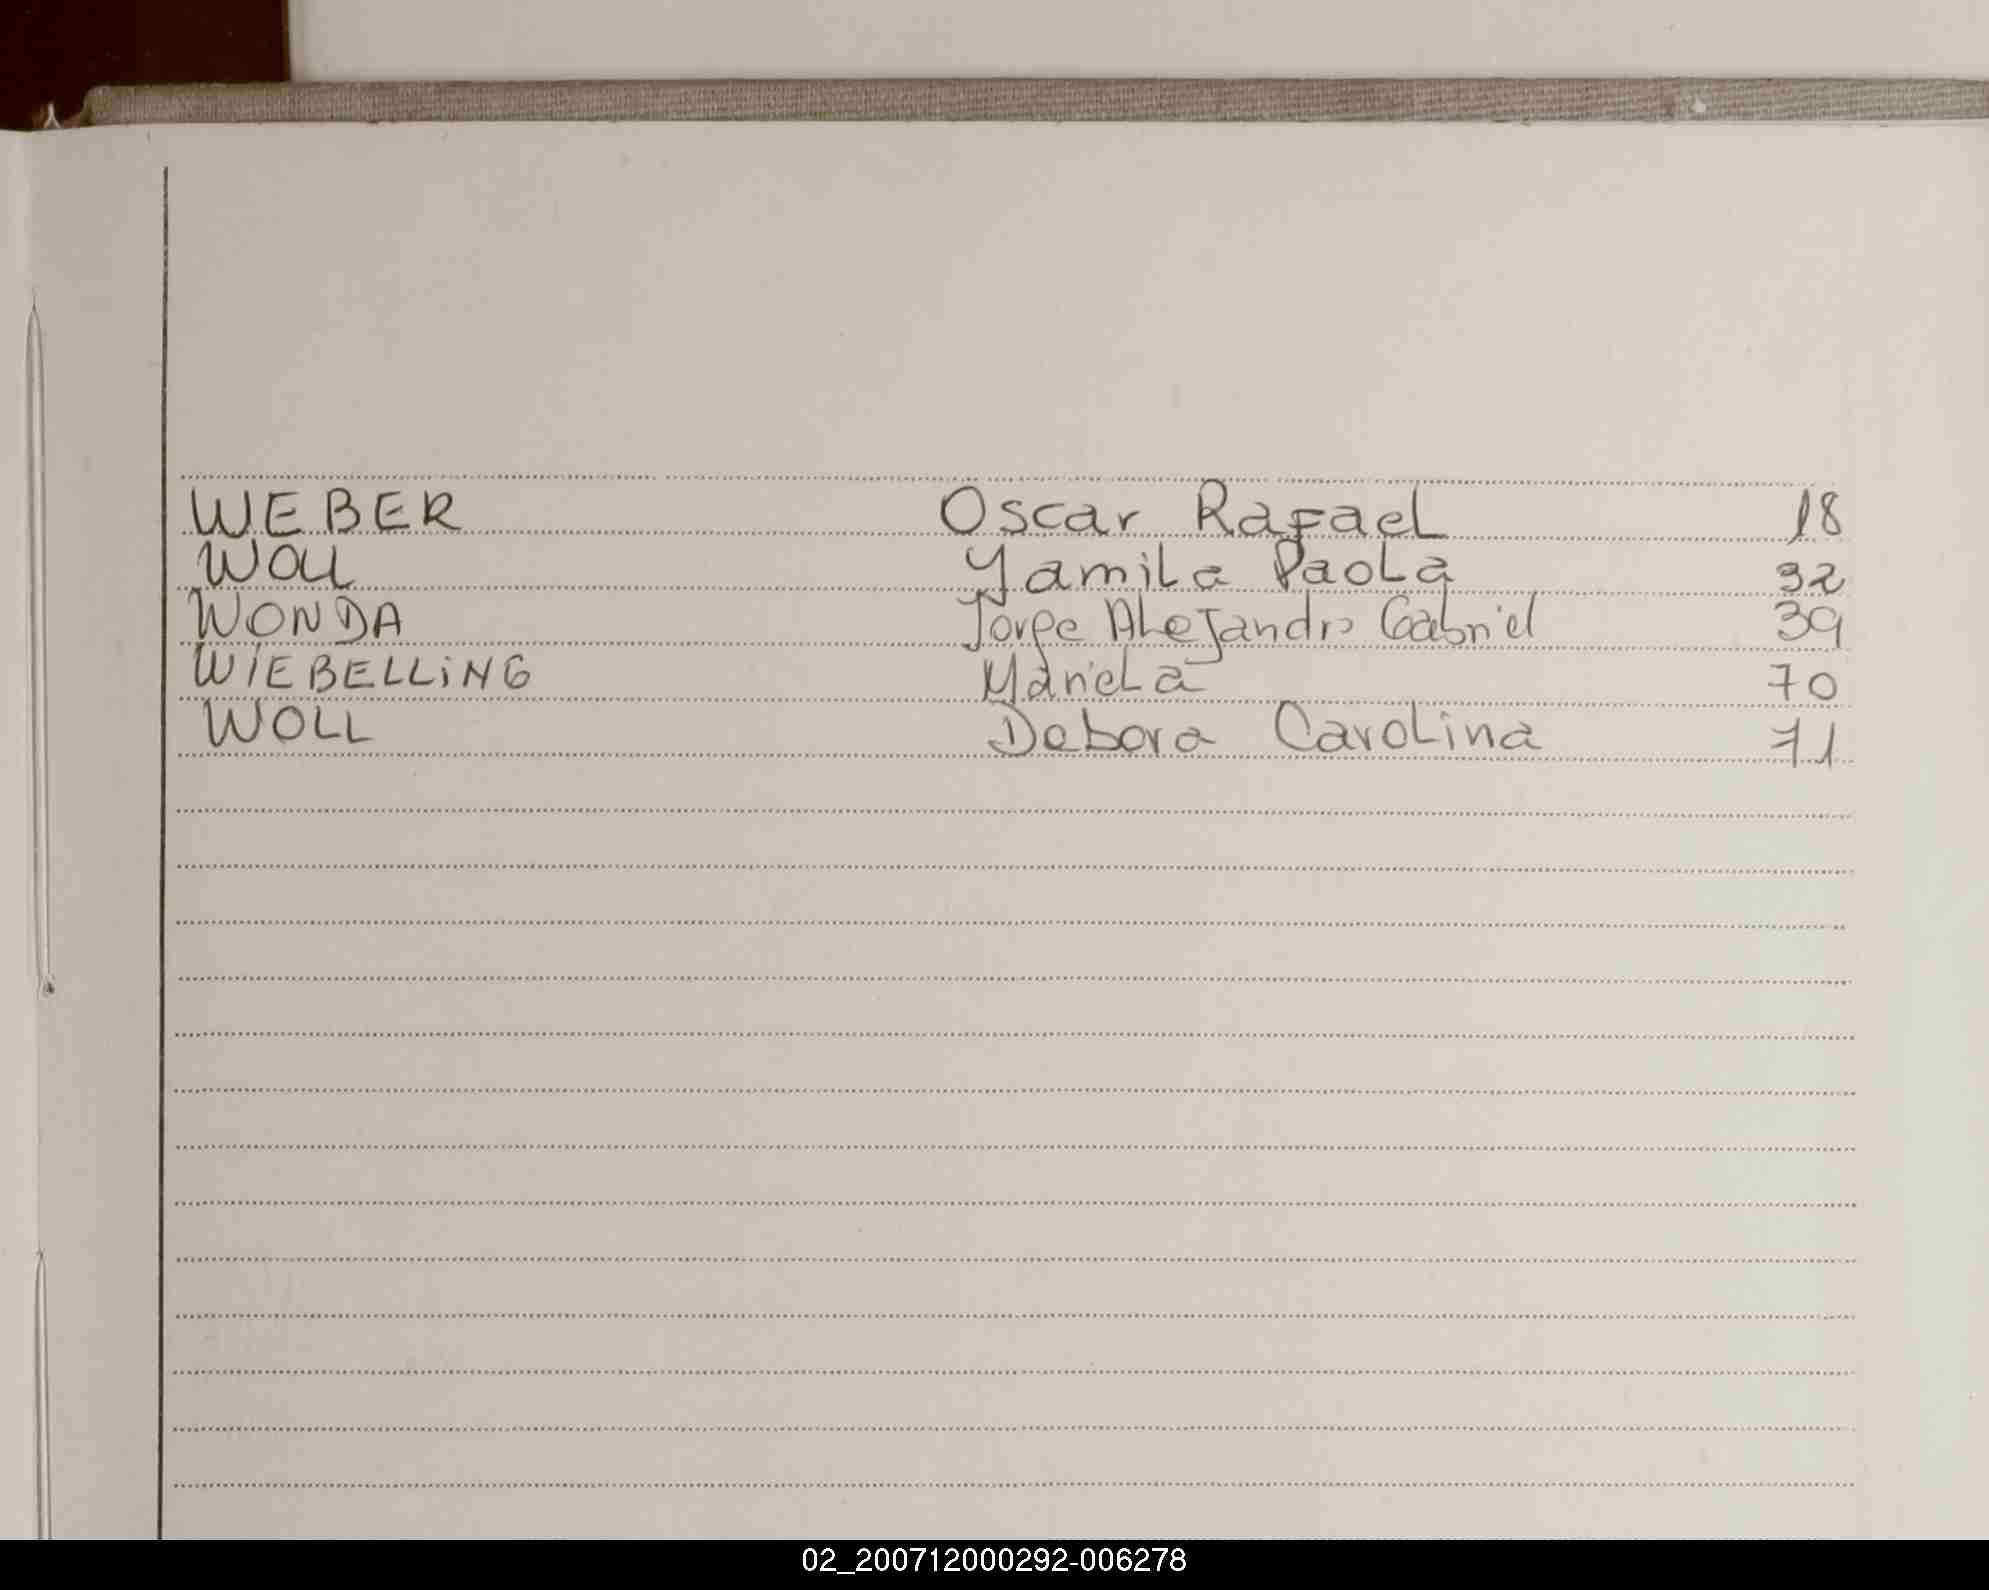 WEBER Oscar Rafael 18
WOLL Yamila Paola 32
WONDA Jorge Alejandro Gabriel 39
WIEBELLING Mariela 70
WOLL Debora Carolina 71
02_200712000292-006278